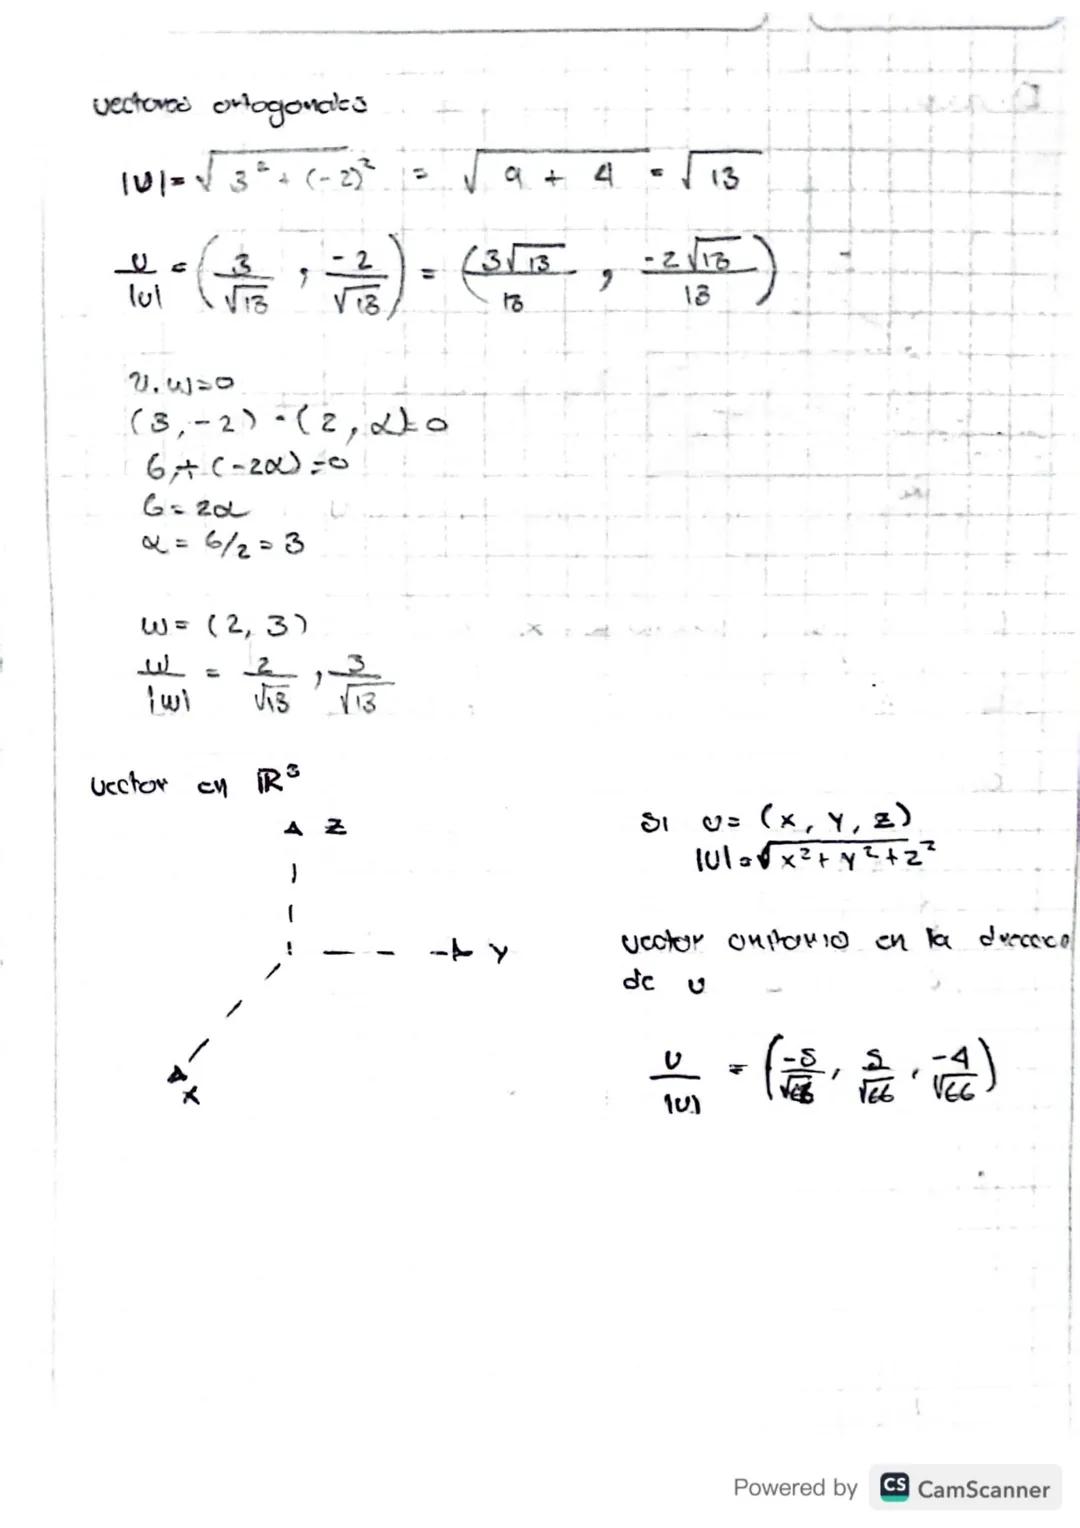 vectores ortogonales
|U| = √3² + (-2)² = √9 + 4 = √13
U/|U| = (3/√13, -2/√13) = (3√13/13, -2√13/13)
v. w = 0
(3, -2) · (2, α) = 0
6 + (-2α) = 0
6 = 2α
α = 6/2 = 3
w = (2, 3)
w/|w| = 2/√13, 3/√13
Vector en ℝ³
Z
Y
X
Si U = (x, Y, Z)
|U| = √x² + y² + z²
vector unitario en la direcco
de U
U/|U| = (-5/√66, 5/√66, -4/√66)
Powered by CS CamScanner